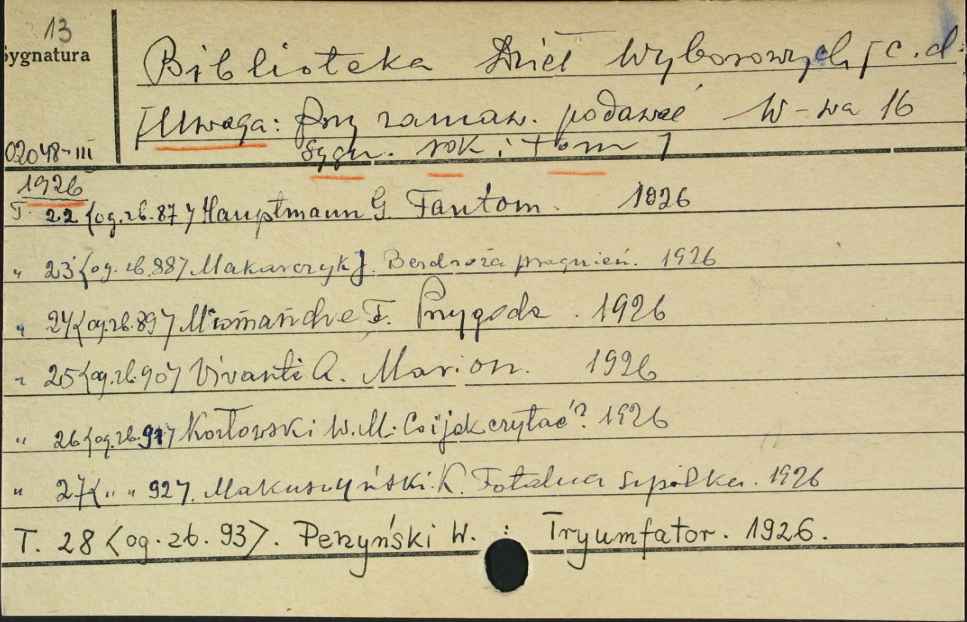 13
Sygnatura
Biblioteka Dzieł Wyborowych [c.d.
[Uwaga: Przy zamaw. podawać W-wa 16
02048-III sygn. rok i tom]
1926
T. 22 <og.zb.87> Hauptmann G. Fantom. 1926
„ 23 <og.zb.88> Makarczyk J. Bezdroża pragnień. 1926
„ 24 <og.zb.89> Miomandre F. Przygoda. 1926
„ 25 <og.zb.90> Vivanti A. Marion. 1926
„ 26 <og.zb.91> Kozłowski W.M. Co i jak czytać? 1926
„ 27 <„ „ 92>. Makuszyński K. Fatalna szpilka. 1926
T. 28 <og.zb.93>. Perzyński W. : Tryumfator. 1926.